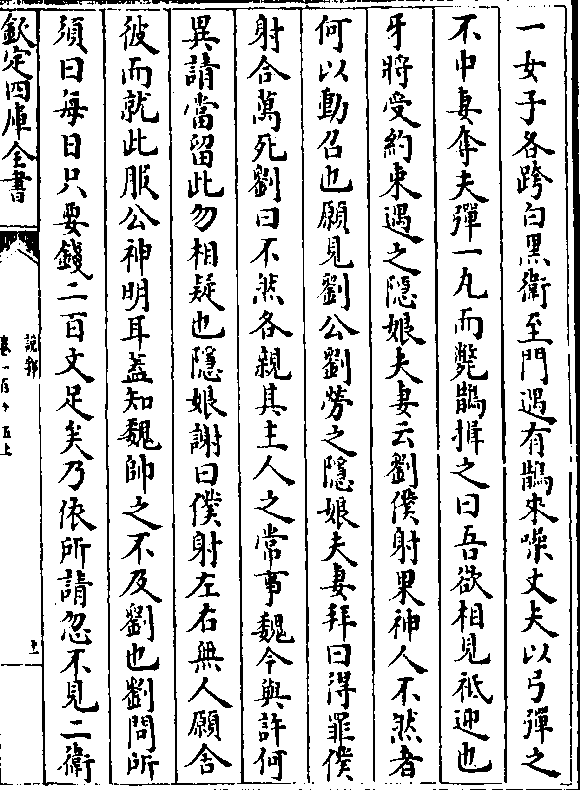 一女子各跨白黑衛至門遇有鵲來噪丈夫以弓彈之
不中妻奪夫彈一丸而斃鵲揖之曰吾欲相見祗迎也
牙將受約束遇之隱娘夫妻云劉僕射果神人不然者
何以動召也願見劉公劉勞之隱娘夫妻拜曰得罪僕
射合萬死劉曰不然各親其主人之常事魏今與許何
異請當留此勿相疑也隱娘謝曰僕射左右無人願舍
彼而就此服公神明耳葢知魏帥之不及劉也劉問所
須曰每日只要錢二百文足矣乃依所請忽不見二衛
欽定四庫全書
說郛
卷一百十五上